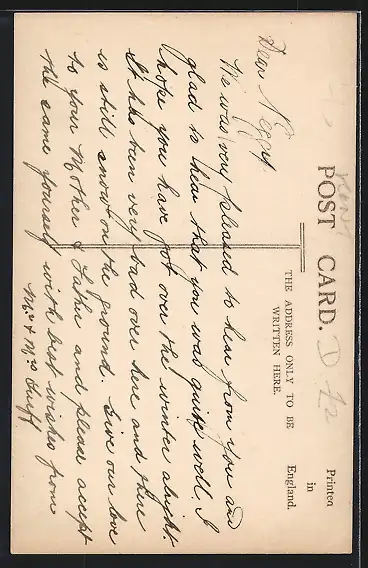 POST CARD.
THE ADDRESS ONLY TO BE
WRITTEN HERE.
Printed
in
England.
Kent
D 12
Dear Peggy.
We was very pleased to hear from you and
glad to hear that you was quite well. I
hope you have got over the winter alright.
It has been very bad over here and there
is still snow on the ground. Give our love
to your Mother & Father and please accept
the same yourself with best wishes from
Mr & Mrs